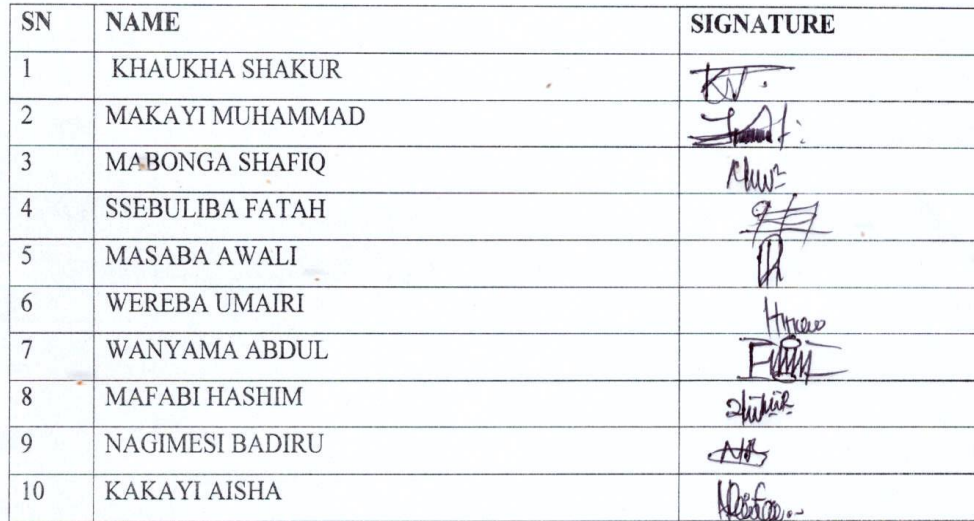 SN NAME SIGNATURE
1 KHAUKHA SHAKUR
2 MAKAYI MUHAMMAD
3 MABONGA SHAFIQ
4 SSEBULIBA FATAH
5 MASABA AWALI
6 WEREBA UMAIRI
7 WANYAMA ABDUL
8 MAFABI HASHIM
9 NAGIMESI BADIRU
10 KAKAYI AISHA